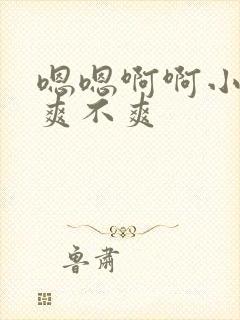 嗯嗯啊啊小
爽不爽
鲁肃